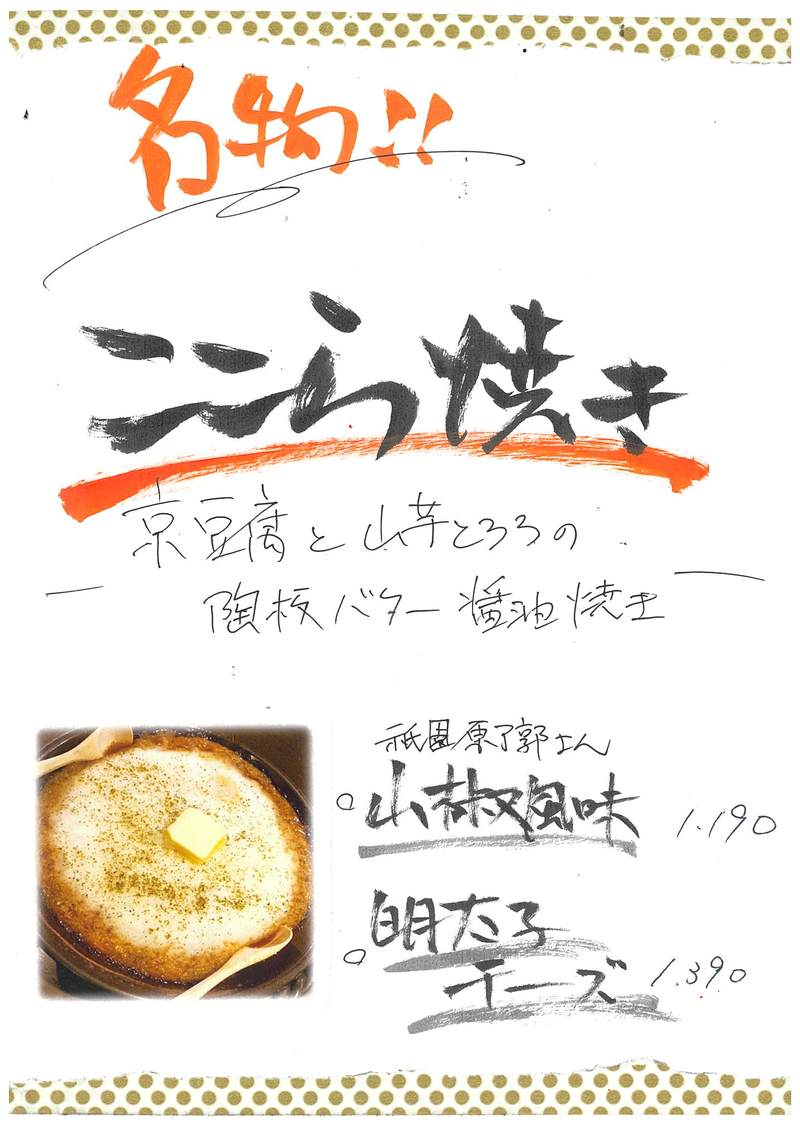 名物!!
ここら焼き
京豆腐と山芋とろろの
陶板バター醤油焼き
祇園原了郭さん
○山椒風味 1.190
○明太子
チーズ 1.390